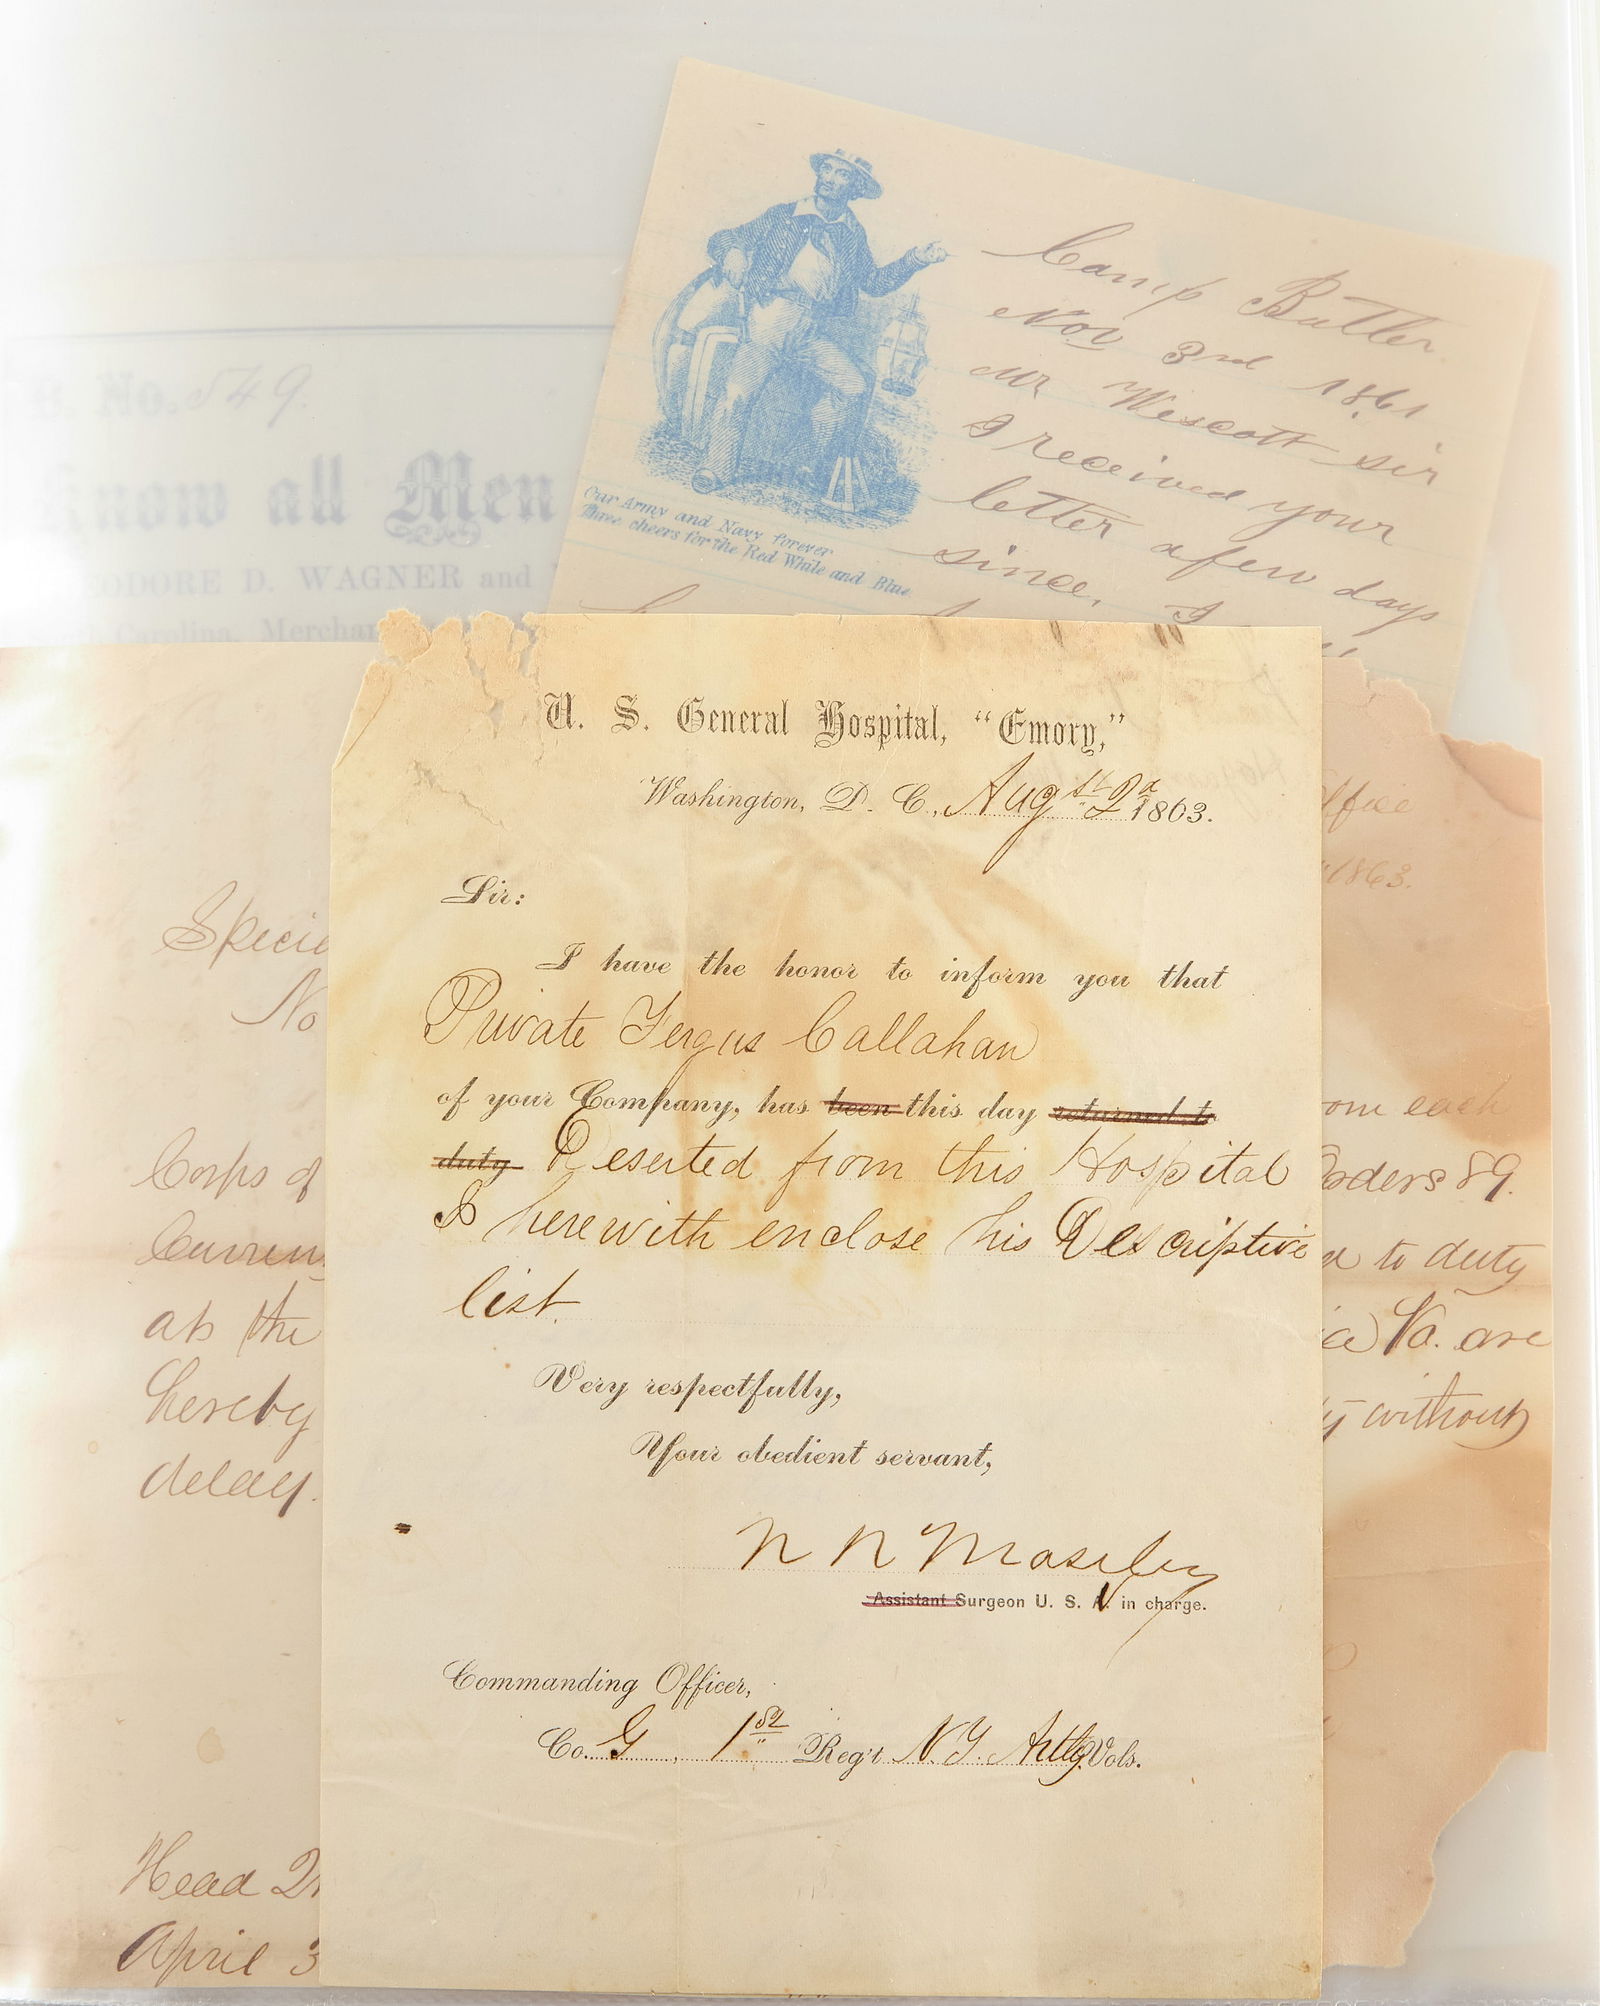 No. 549.
Know all Men
ODORE D. WAGNER and
Carolina, Merchan
Our Army and Navy forever
Three cheers for the Red White and Blue
Camp Butler
Nov 3rd 1861
Mr Wescott sir
I received your
letter a few days
since, I
Office
1863.
Specia
No
Corps of
Curren
at the
hereby
delay.
Head Q
April 3
om each
Orders 89.
to duty
Va. are
without
U. S. General Hospital, "Emory,"
Washington, D. C., Augst 2d 1863.
Sir:
I have the honor to inform you that
Private Fergus Callahan
of your Company, has been this day returned to
duty Deserted from this Hospital
I herewith enclose his Descriptive
list.
Very respectfully,
Your obedient servant,
N R Moseley
Assistant Surgeon U. S. V. in charge.
Commanding Officer,
Co. G, 1st Reg't N.Y. Artly. Vols.